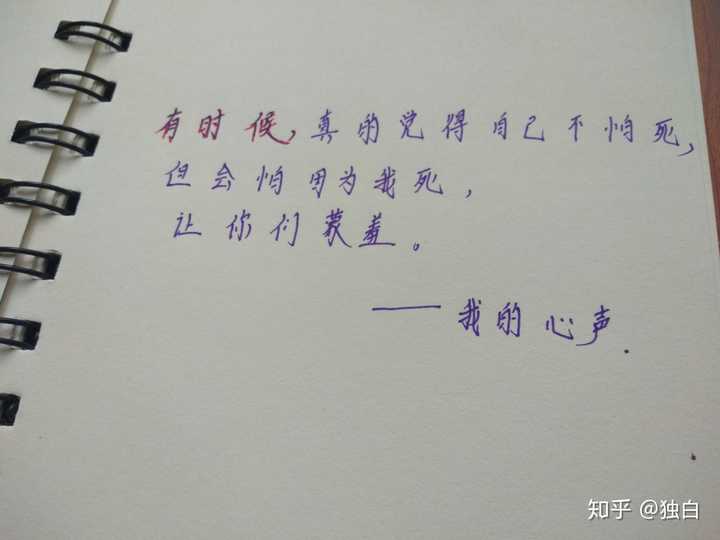 有时候,真的觉得自己不怕死,
但会怕因为我死,
让你们蒙羞。
——我的心声.
知乎 @独白